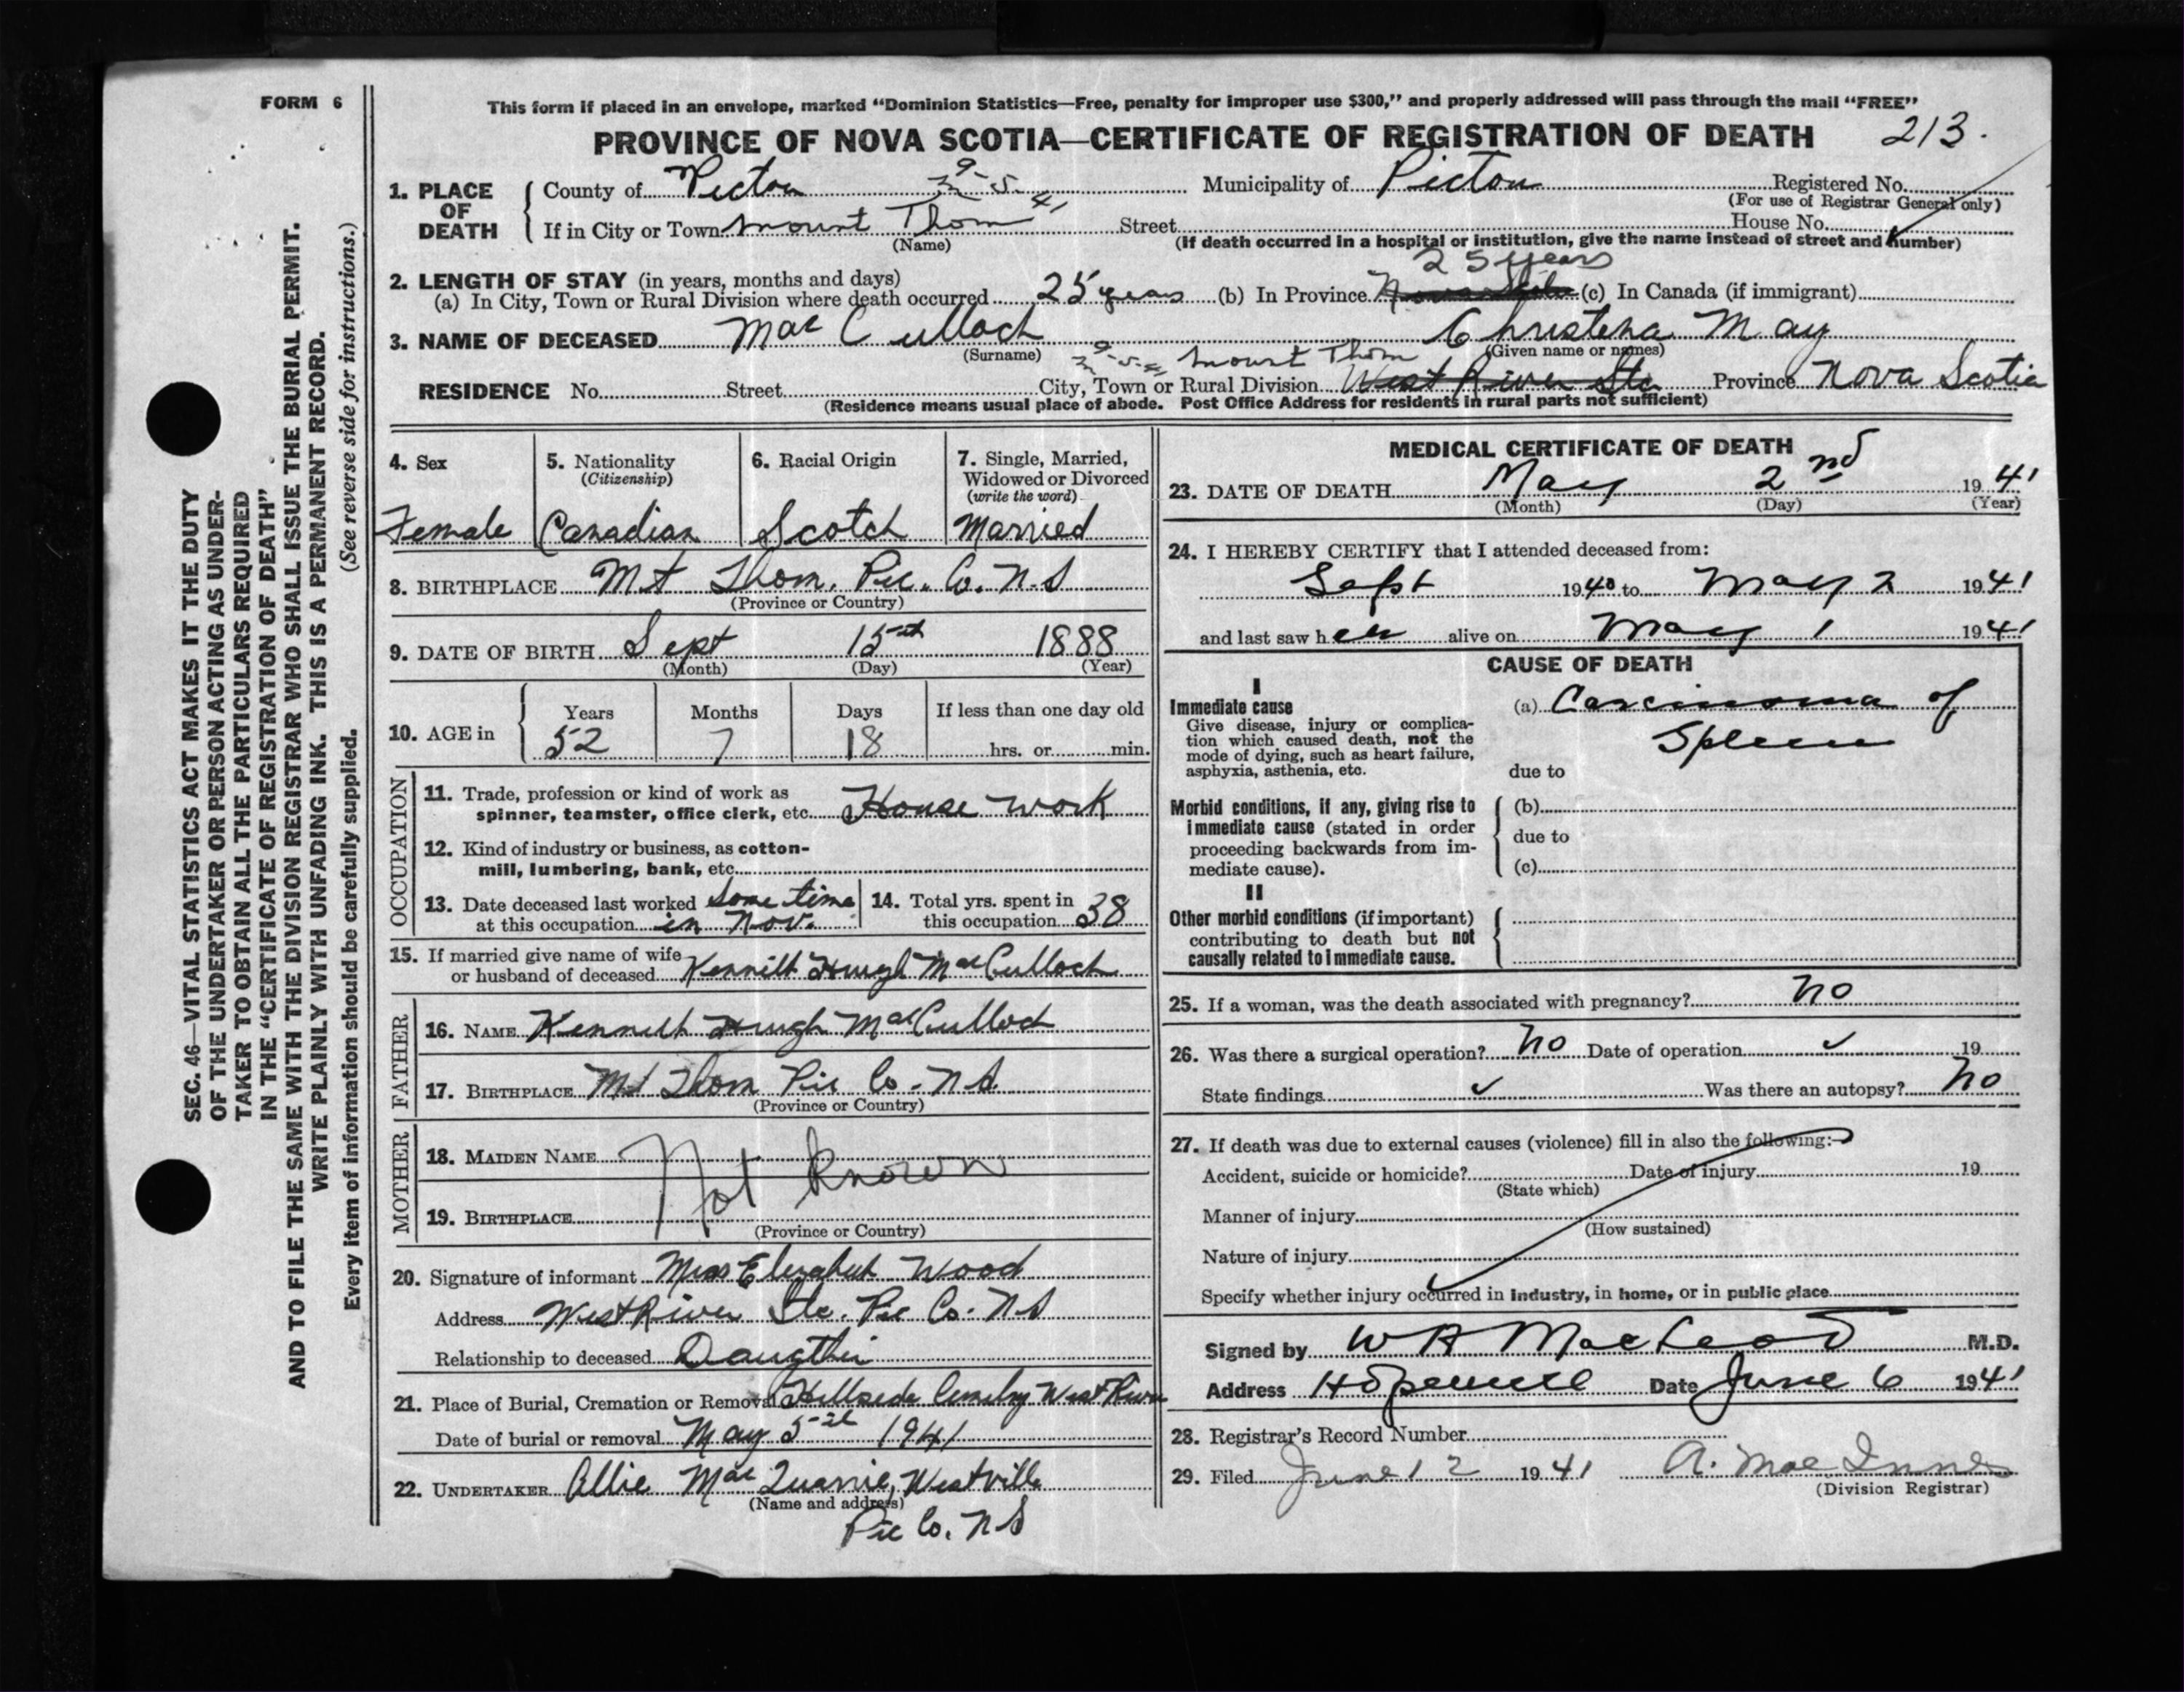 FORM 6
This form if placed in an envelope, marked “Dominion Statistics—Free, penalty for improper use $300,” and properly addressed will pass through the mail “FREE”
PROVINCE OF NOVA SCOTIA—CERTIFICATE OF REGISTRATION OF DEATH 213.
1. PLACE OF DEATH
County of Pictou Municipality of Pictou Registered No.
(For use of Registrar General only)
If in City or Town Mount Thom Street House No.
(Name) (If death occurred in a hospital or institution, give the name instead of street and number)
2. LENGTH OF STAY (in years, months and days) 25 years
(a) In City, Town or Rural Division where death occurred 25 years (b) In Province Nova Scotia (c) In Canada (if immigrant)
3. NAME OF DECEASED Mac Culloch Christena May
(Surname) (Given name or names)
Mount Thom
RESIDENCE No. Street City, Town or Rural Division West River Sta Province Nova Scotia
(Residence means usual place of abode. Post Office Address for residents in rural parts not sufficient)
4. Sex
Female
5. Nationality
(Citizenship)
Canadian
6. Racial Origin
Scotch
7. Single, Married,
Widowed or Divorced
(write the word)
Married
8. BIRTHPLACE Mt Thom. Pic. Co. N.S
(Province or Country)
9. DATE OF BIRTH Sept 15th 1888
(Month) (Day) (Year)
10. AGE in
Years Months Days If less than one day old
52 7 18 hrs. or min.
OCCUPATION
11. Trade, profession or kind of work as
spinner, teamster, office clerk, etc. House work
12. Kind of industry or business, as cotton-
mill, lumbering, bank, etc.
13. Date deceased last worked some time
at this occupation in Nov.
14. Total yrs. spent in
this occupation 38
15. If married give name of wife
or husband of deceased Kennith Hugh MacCulloch
FATHER
16. NAME Kennith Hugh MacCulloch
17. BIRTHPLACE Mt Thom Pic Co. N.S.
(Province or Country)
MOTHER
18. MAIDEN NAME Not Known
19. BIRTHPLACE
(Province or Country)
20. Signature of informant Miss Elizabeth Wood
Address West River Sta. Pic Co. N.S
Relationship to deceased Daugthir
21. Place of Burial, Cremation or Removal Hillside Cemetry West River
Date of burial or removal May 5th 1941
22. UNDERTAKER Allie Mac Quarrie, Westville
(Name and address)
Pic Co. N S
MEDICAL CERTIFICATE OF DEATH
23. DATE OF DEATH May 2nd 1941
(Month) (Day) (Year)
24. I HEREBY CERTIFY that I attended deceased from:
Sept 1940 to May 2 1941
and last saw her alive on May 1 1941
CAUSE OF DEATH
I
Immediate cause
Give disease, injury or complica-
tion which caused death, not the
mode of dying, such as heart failure,
asphyxia, asthenia, etc.
(a) Carcinoma of
Spleen
due to
Morbid conditions, if any, giving rise to
immediate cause (stated in order
proceeding backwards from im-
mediate cause).
(b)
due to
(c)
II
Other morbid conditions (if important)
contributing to death but not
causally related to immediate cause.
25. If a woman, was the death associated with pregnancy? No
26. Was there a surgical operation? No Date of operation ✓ 19
State findings ✓ Was there an autopsy? No
27. If death was due to external causes (violence) fill in also the following:—
Accident, suicide or homicide? Date of injury 19
(State which)
Manner of injury
(How sustained)
Nature of injury
Specify whether injury occurred in industry, in home, or in public place
Signed by W A MacLeod M.D.
Address Hopewell Date June 6 1941
28. Registrar’s Record Number
29. Filed June 12 1941 A. Mac Innes
(Division Registrar)
SEC. 46—VITAL STATISTICS ACT MAKES IT THE DUTY
OF THE UNDERTAKER OR PERSON ACTING AS UNDER-
TAKER TO OBTAIN ALL THE PARTICULARS REQUIRED
IN THE “CERTIFICATE OF REGISTRATION OF DEATH”
AND TO FILE THE SAME WITH THE DIVISION REGISTRAR WHO SHALL ISSUE THE BURIAL PERMIT.
WRITE PLAINLY WITH UNFADING INK. THIS IS A PERMANENT RECORD.
Every item of information should be carefully supplied. (See reverse side for instructions.)